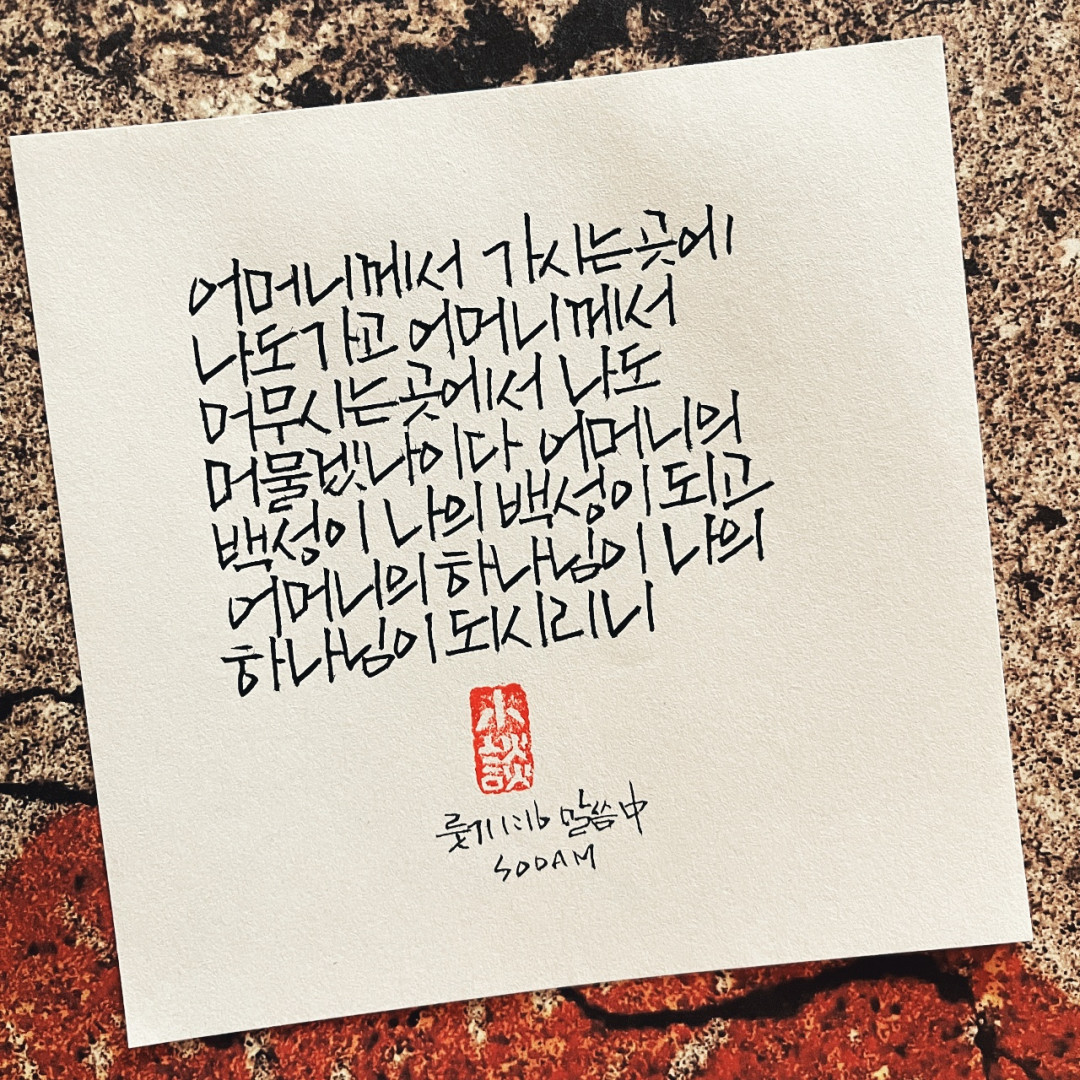 어머니께서 가시는 곳에
나도 가고 어머니께서
머무시는 곳에서 나도
머물겠나이다 어머니의
백성이 나의 백성이 되고
어머니의 하나님이 나의
하나님이 되시리니
小談
룻기 1:16 말씀 中
SODAM